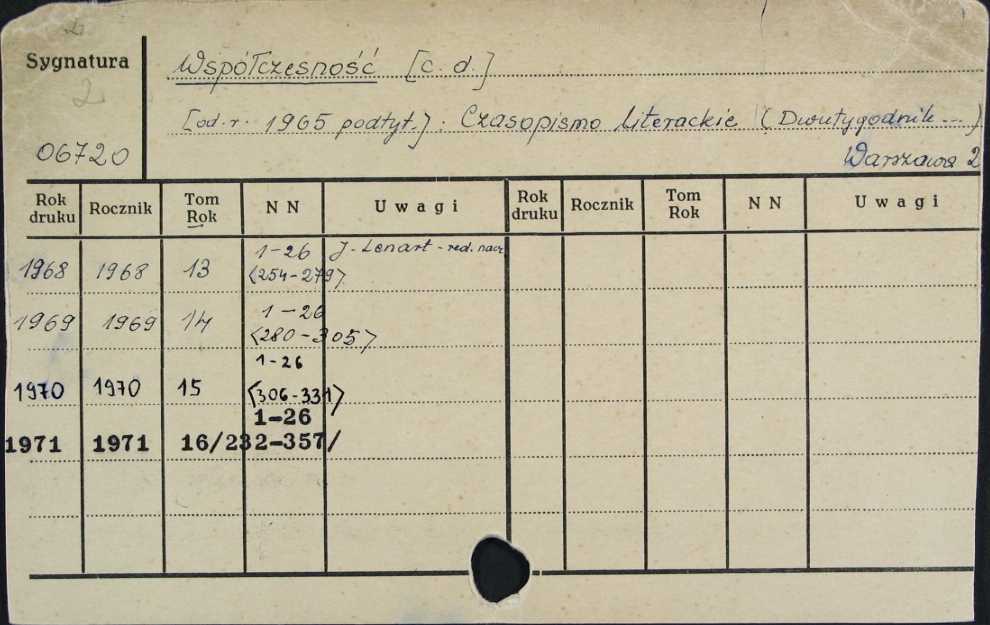 2
Sygnatura
Współczesność [c. d.]
2
[od. r. 1965 podtyt.]. Czasopismo Literackie (Dwutygodnik...)
06720
Warszawa 2
Rok druku Rocznik Tom Rok N N Uwagi Rok druku Rocznik Tom Rok N N Uwagi
1968 1968 13 1-26 J. Lenart - red. nacz.
<254-279>
1969 1969 14 1-26
<280-305>
1970 1970 15 1-26
<306-331>
1-26
1971 1971 16/232-357/